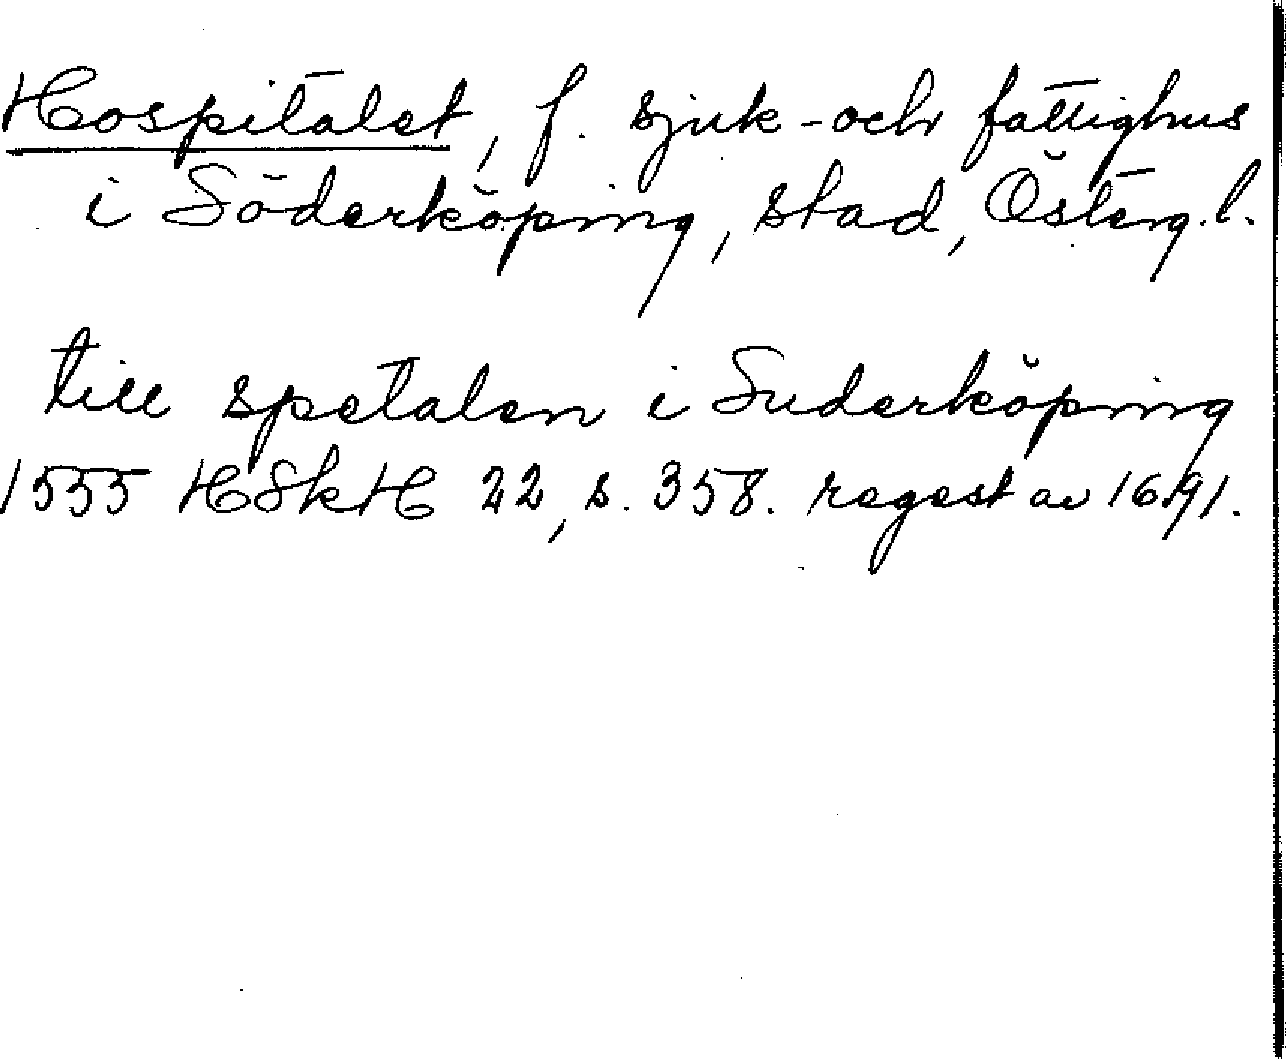 Hospitalet, f. sjuk- och fattighus
i Söderköping, stad, Österg.l.
till spetalen i Suderköping
1555 HSkH 22, s. 358. regest av 1691.